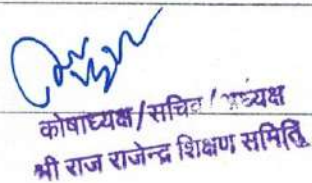 कोषाध्यक्ष/सचिव/अध्यक्ष
श्री राज राजेन्द्र शिक्षण समिति